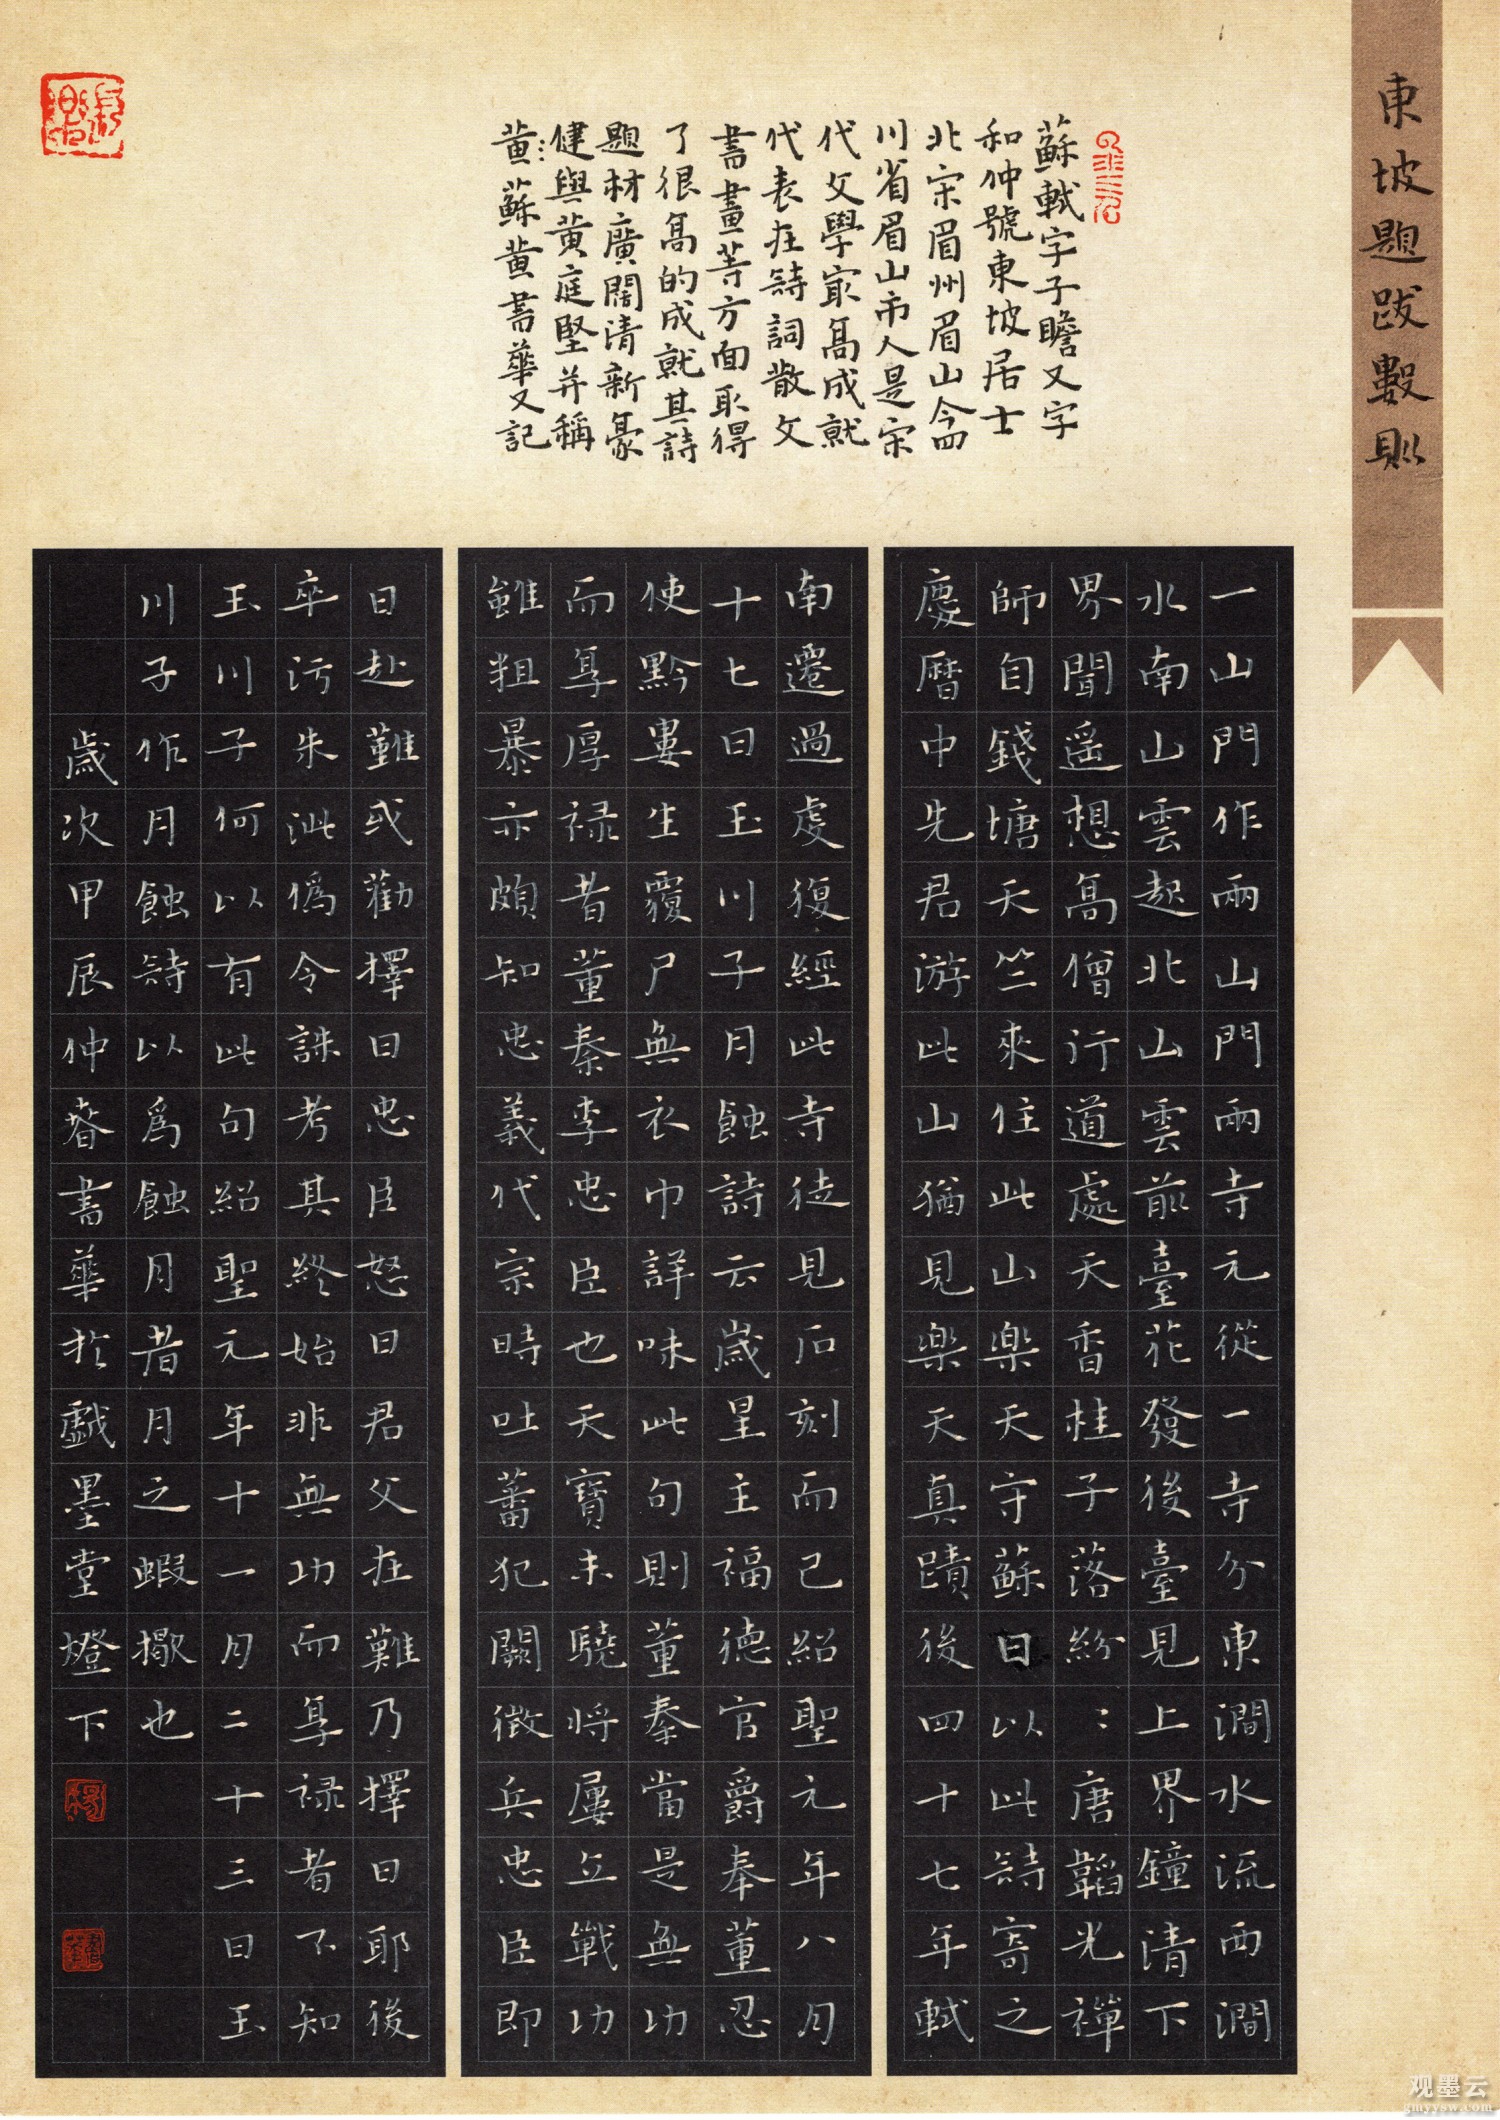 東坡題跋數則
蘇軾字子瞻又字
和仲號東坡居士
北宋眉州眉山今四
川省眉山市人是宋
代文學最高成就
代表在詩詞散文
書畫等方面取得
了很高的成就其詩
題材廣闊清新豪
健與黄庭堅并稱
黄:蘇黄書華又記
一山門作兩山門兩寺元從一寺分東澗水流西澗
水南山雲起北山雲前臺花發後臺見上界鐘清下
界聞遥想高僧行道處天香桂子落紛:唐韜光禪
師自錢塘天竺來住此山樂天守蘇日以此詩寄之
慶曆中先君游此山猶見樂天真蹟後四十七年軾
南遷過虔復經此寺徒見石刻而已紹聖元年八月
十七日玉川子月蝕詩云歲星主福德官爵奉董忍
使黔婁生覆尸無衣巾詳味此句則董秦當是無功
而享厚禄者董秦李忠臣也天寶末驍将屢立戰功
雖粗暴亦頗知忠義代宗時吐蕃犯闕徵兵忠臣即
日赴難或勸擇日忠臣怒曰君父在難乃擇日耶後
卒污朱泚僞令誅考其終始非無功而享禄者不知
玉川子何以有此句紹聖元年十一月二十三日玉
川子作月蝕詩以爲蝕月者月之蝦蟆也
歲次甲辰仲春書華於戲墨堂燈下
書華
观墨云
gmyysw.com